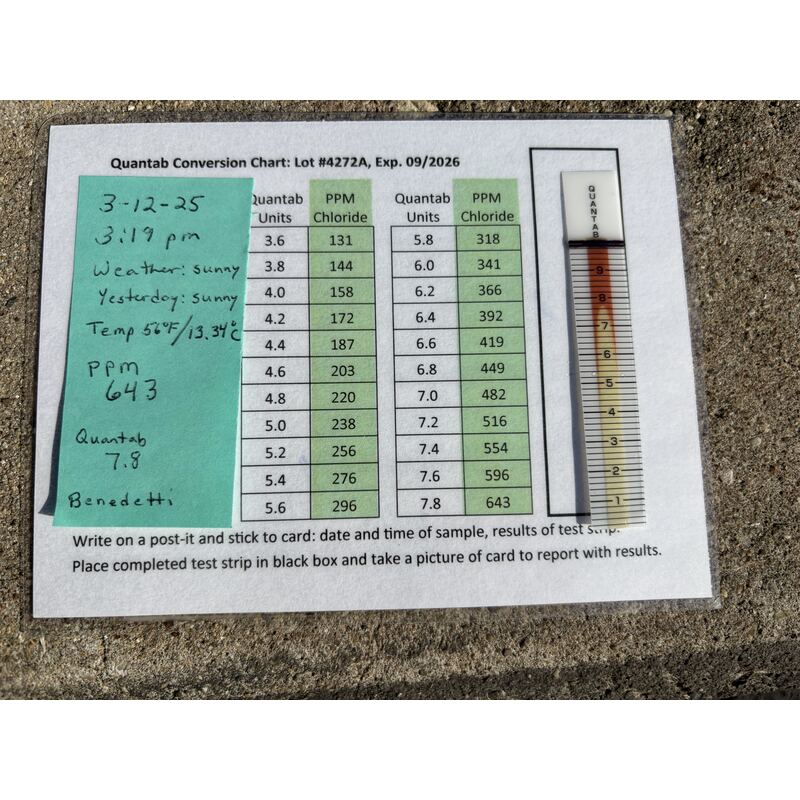 Quantab Conversion Chart: Lot #4272A, Exp. 09/2026
3-12-25
3:19 pm
Weather: sunny
Yesterday: sunny
Temp 56°F/13.34°C
PPM
643
Quantab
7.8
Benedetti
Quantab Units PPM Chloride
3.6 131
3.8 144
4.0 158
4.2 172
4.4 187
4.6 203
4.8 220
5.0 238
5.2 256
5.4 276
5.6 296
Quantab Units PPM Chloride
5.8 318
6.0 341
6.2 366
6.4 392
6.6 419
6.8 449
7.0 482
7.2 516
7.4 554
7.6 596
7.8 643
QUANTAB
9
8
7
6
5
4
3
2
1
Write on a post-it and stick to card: date and time of sample, results of test strip.
Place completed test strip in black box and take a picture of card to report with results.